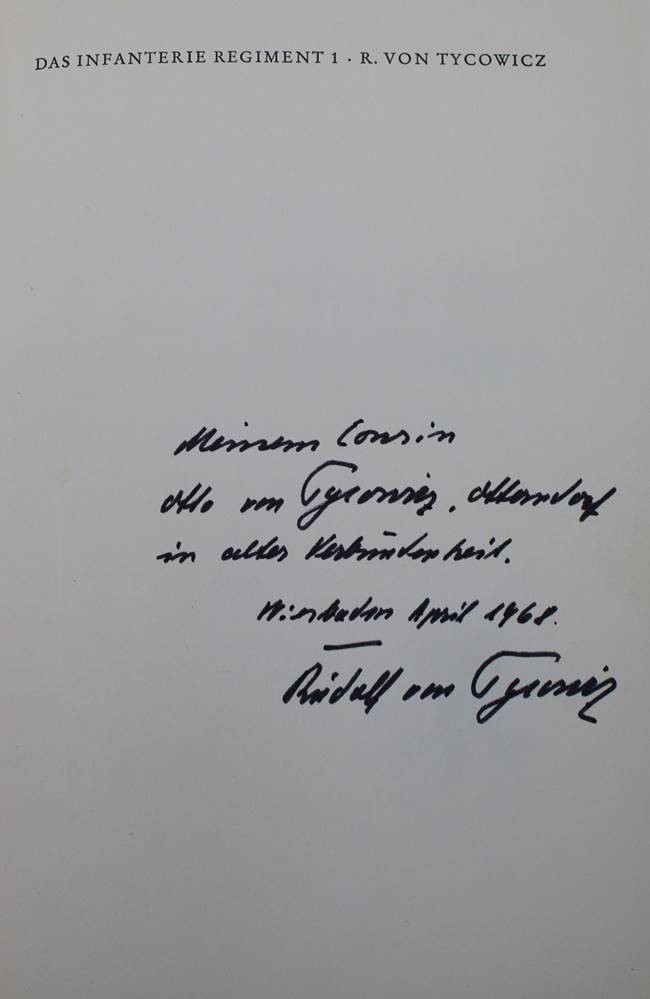 DAS INFANTERIE REGIMENT 1 · R. VON TYCOWICZ
Meinem Cousin
Otto von Tycowicz, Otterndorf
in alter Verbundenheit.
Wiesbaden April 1968.
Rudolf von Tycowicz